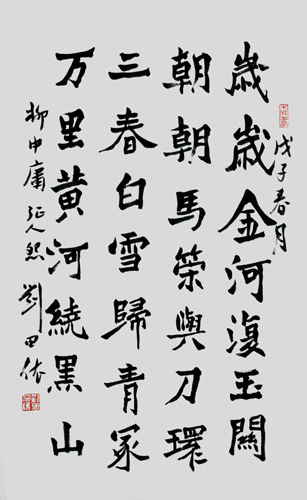 歲歲金河復玉關
朝朝馬策與刀環
三春白雪歸青冢
万里黄河繞黑山
戊子春月
柳中庸征人怨
劉田依